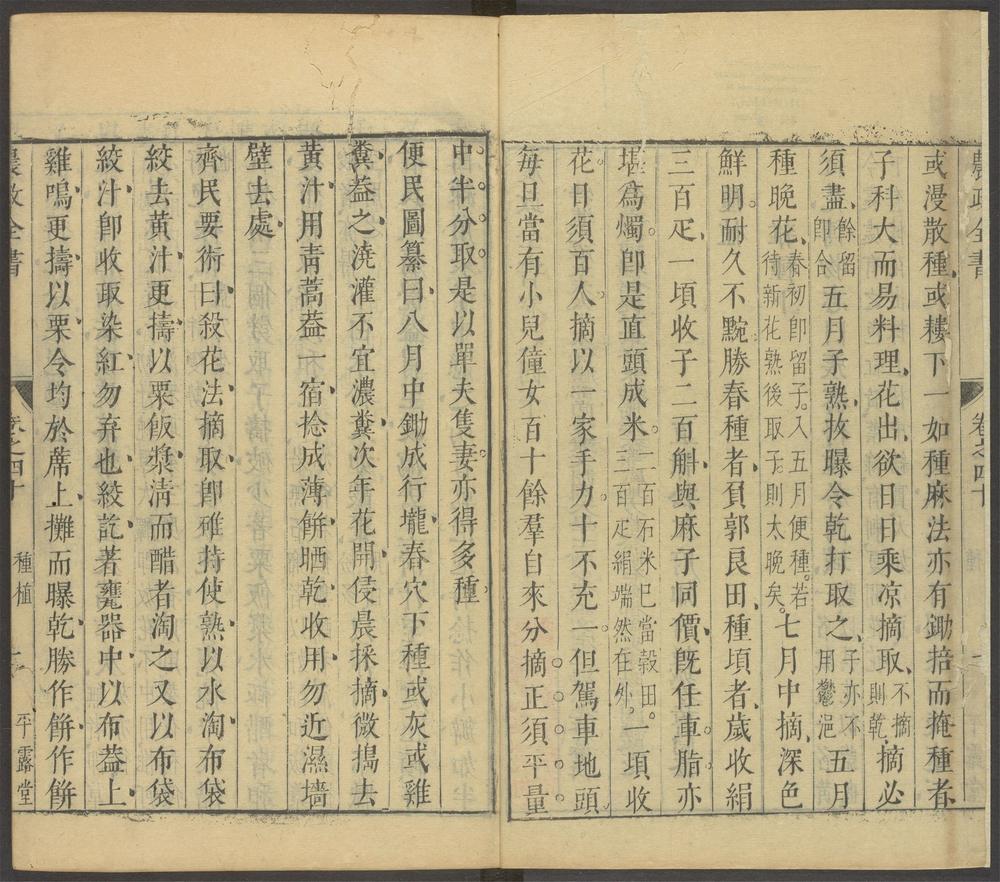 或漫散種或耬下一如種麻法亦有鋤掊而掩種者
子科大而易料理花出欲日日乘涼摘取不摘則乾摘必
須盡餘留即合五月子熟拔曝令乾打取之子亦不用鬱浥五月
種晚花春初即留子入五月便種若待新花熟後取子則太晚矣七月中摘深色
鮮明耐久不黦勝春種者負郭良田種頃者歲收絹
三百疋一頃收子二百斛與麻子同價旣任車脂亦
堪爲燭卽是直頭成米二百石米已當穀田三百疋絹端然在外一頃收
花日須百人摘以一家手力十不充一但駕車地頭
每旦當有小兒僮女百十餘羣自來分摘正須平量
中半分取是以單夫隻妻亦得多種
便民圖纂曰八月中鋤成行壠舂穴下種或灰或雞
糞葢之澆灌不宜濃糞次年花開侵晨採摘微搗去
黃汁用靑蒿葢一宿捻成薄餅晒乾收用勿近濕墻
壁去處
齊民要術曰殺花法摘取卽碓持使熟以水淘布袋
絞去黃汁更擣以粟飯漿淸而醋者淘之又以布袋
絞汁卽收取染紅勿弃也絞訖著甕器中以布葢上
雞鳴更擣以栗令均於蓆上攤而曝乾勝作餅作餅
農政全書
卷之四十
種植
平露堂
農政全書
卷之四十
種